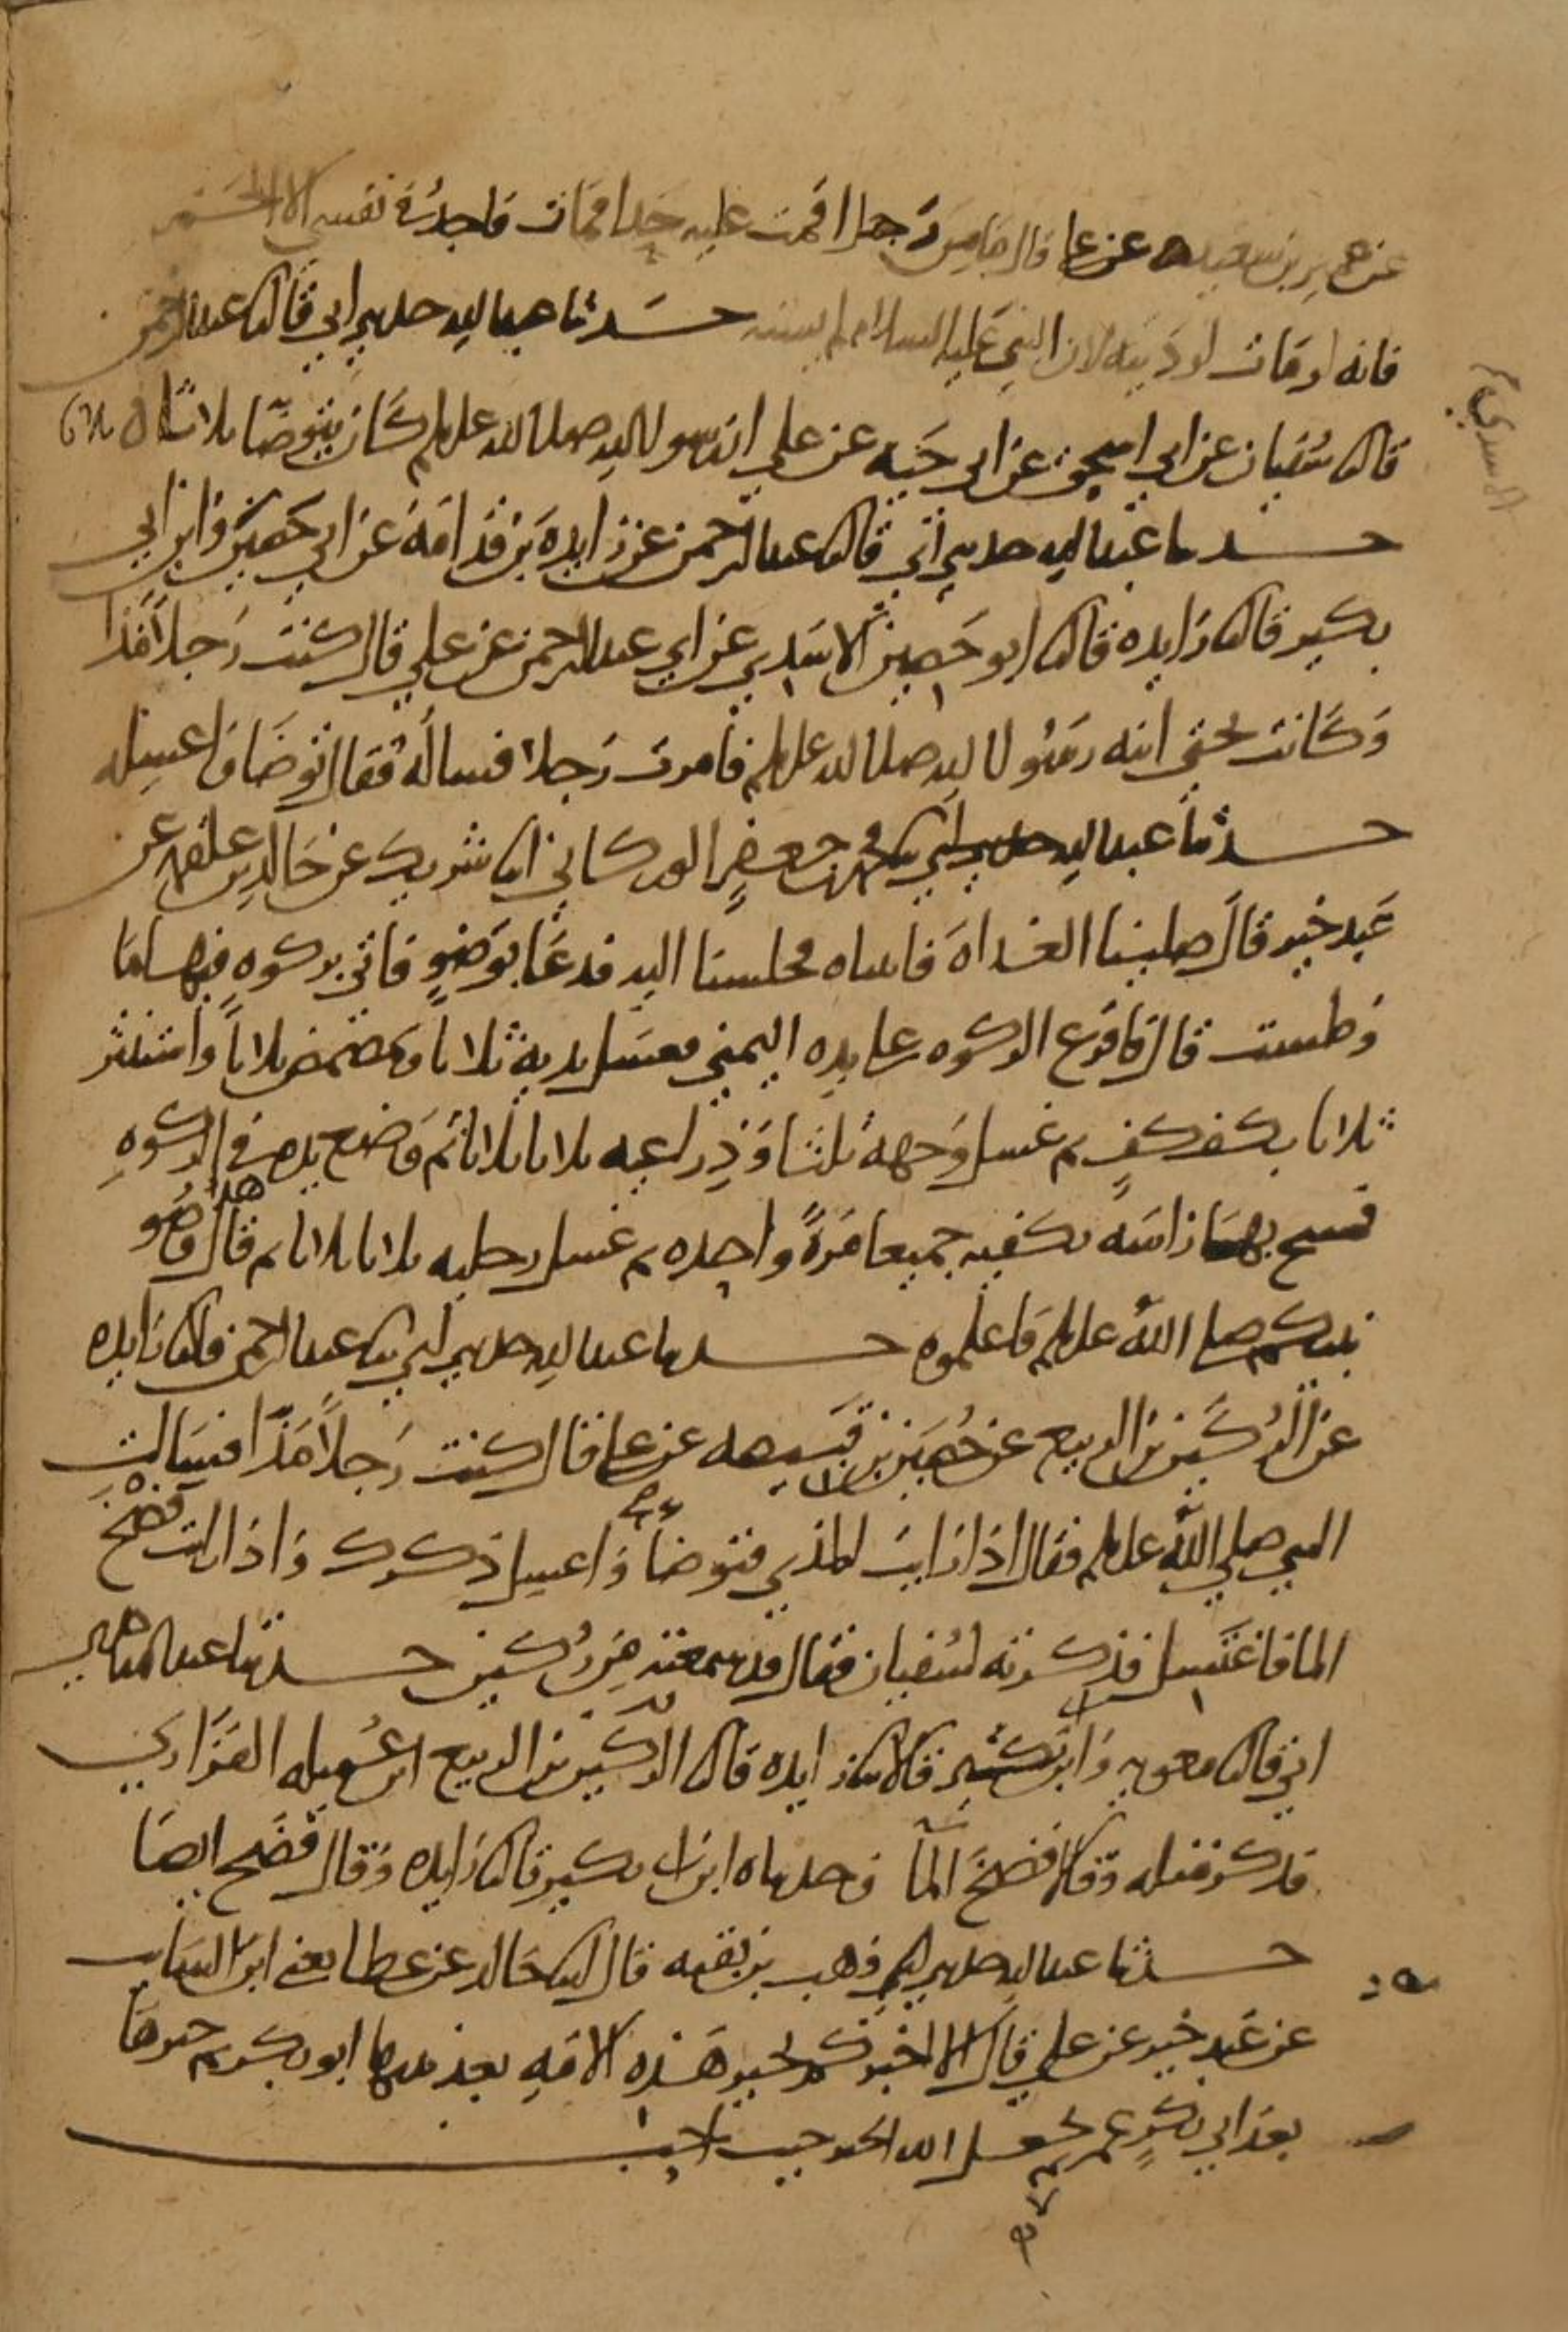 عن عمير بن سعيد عن علي قال ما من رجل اقمت عليه حدا فمات فاجد في نفسي الا الخمر
فانه لو مات لوديته لان النبي عليه السلام لم يسنه حدثنا عبد الله حدثني ابي قال ثنا عبد الرحمن
قال ثنا سفيان عن ابي اسحق عن ابي حيه عن علي ان رسول الله صلى الله عليه وسلم كان يتوضا ثلاثا ثلاثا
حدثنا عبد الله حدثني ابي قال ثنا عبد الرحمن عن زايده بن قدامه عن ابي حصين وابن ابي
بكير قال ثنا زايده قال ثنا ابو حصين الاسدي عن ابي عبد الرحمن عن علي قال كنت رجلا مذا
وكانت تحتي ابنه رسول الله صلى الله عليه وسلم فامرت رجلا فساله فقال توضا واغسله
حدثنا عبد الله ثنا محمد بن جعفر الوركاني انا شريك عن خالد بن علقمه عن
عبد خير قال صلينا الغداه فاتيناه فجلسنا اليه فدعا بوضو فاتي بركوه فيها ما
وطست قال فافرغ الركوه على يده اليمني فغسل يديه ثلاثا وتمضمض ثلاثا واستنثر
ثلاثا بكف كف ثم غسل وجهه ثلثا وذراعيه ثلاثا ثلاثا ثم وضع يده في الركوه
فمسح بها راسه بكفيه جميعا مرة واحده ثم غسل رجليه ثلاثا ثلاثا ثم قال هذا وضو
نبيكم صلى الله عليه وسلم فاعلموه حدثنا عبد الله حدثني ابي ثنا عبد الرحمن قال ثنا زايده
عن الركين بن الربيع عن حصين بن قبيصه عن علي قال كنت رجلا مذا فسالت
النبي صلي الله عليه وسلم فقال اذا رايت المذي فتوضا واغسل ذكرك واذا رايت فضخ
الما فاغتسل فذكرته لسفيان فقال قد سمعته من ركين حدثنا عبد الله حدثني
ابي قال ثنا معويه وابن قالا ثنا زايده قال ثنا الركين بن الربيع ابن عميله الفزاري
فذكر مثله وقالا فضخ الما وحدثناه ابن ابي بكير قال ثنا زايده وقال فضخ ايضا
حدثنا عبد الله حدثني وهب بن بقيه قال انا خالد عن عطا يعني ابن السايب
عن عبد خير عن علي قال الا اخبركم بخير هذه الامه بعد نبيها ابو بكر ثم خيرها
بعد ابي بكر عمر ثم يجعل الله الخير حيث احب
الاسدي